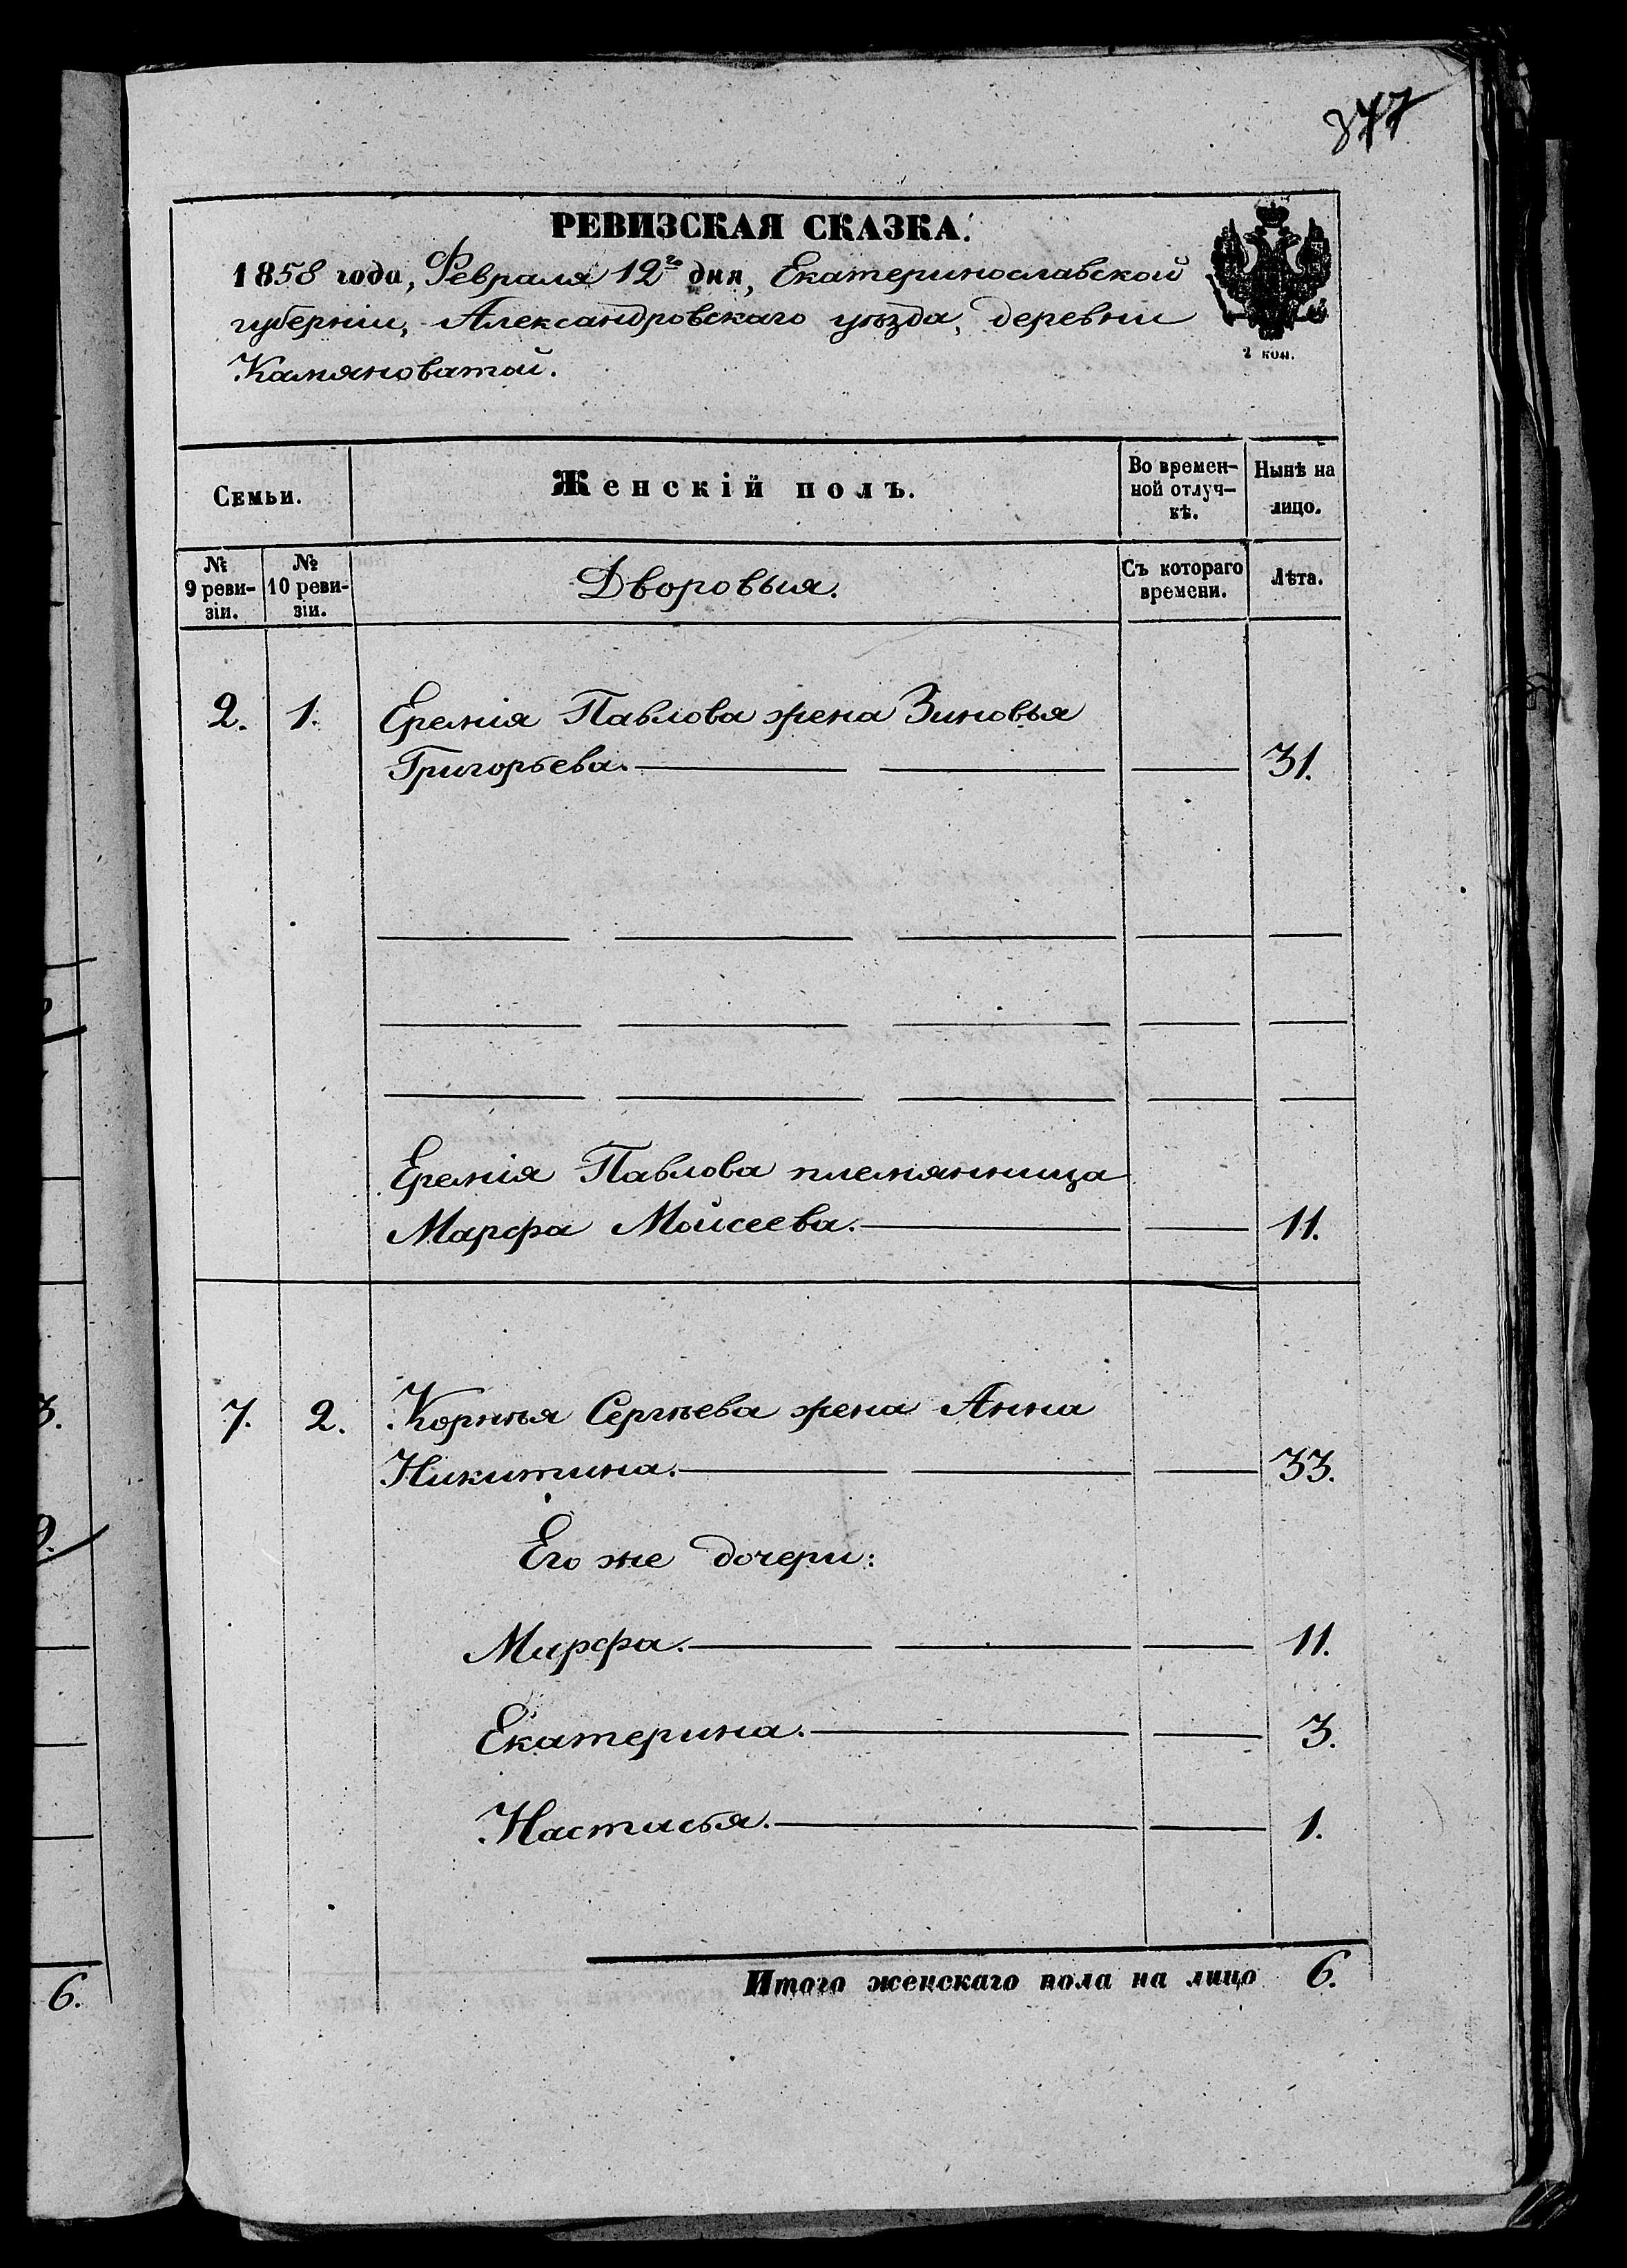 877
РЕВИЗСКАЯ СКАЗКА.
1858 года, Февраля 12го дня, Екатеринославской
губерніи, Александровскаго уѣзда, деревни
Камяноватой.
2 коп.
Семьи.
Женскій полъ.
Во времен-
ной отлуч-
кѣ.
Нынѣ на
лицо.
№
9 реви-
зіи.
№
10 реви-
зіи.
Дворовыя.
Съ котораго
времени.
Лѣта.
2. 1. Еремія Павлова жена Зиновья
Григорьева. 31.
Еремія Павлова племянница
Марфа Моисеева. 11.
7. 2. Корнѣя Сергѣева жена Анна
Никитина. 33.
Его же дочери:
Марфа. 11.
Екатерина. 3.
Настасья. 1.
Итого женскаго пола на лицо 6.
6.